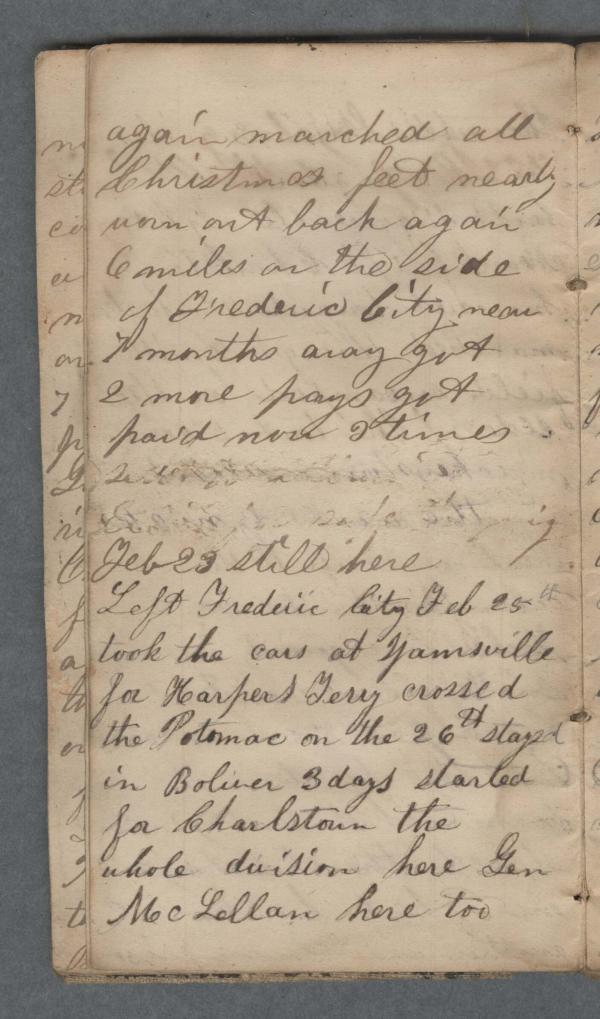 again marched all
Christmas feet nearly
worn out back again
6 miles on the side
of Frederic City near
7 months away got
2 more pays got
paid now 2 times
Feb 23 still here
Left Frederic City Feb 25th
took the cars at Yamsville
for Harpers Ferry crossed
the Potomac on the 26th stayed
in Boliver 3 days started
for Charlstoun the
whole division here Gen
McLellan here too